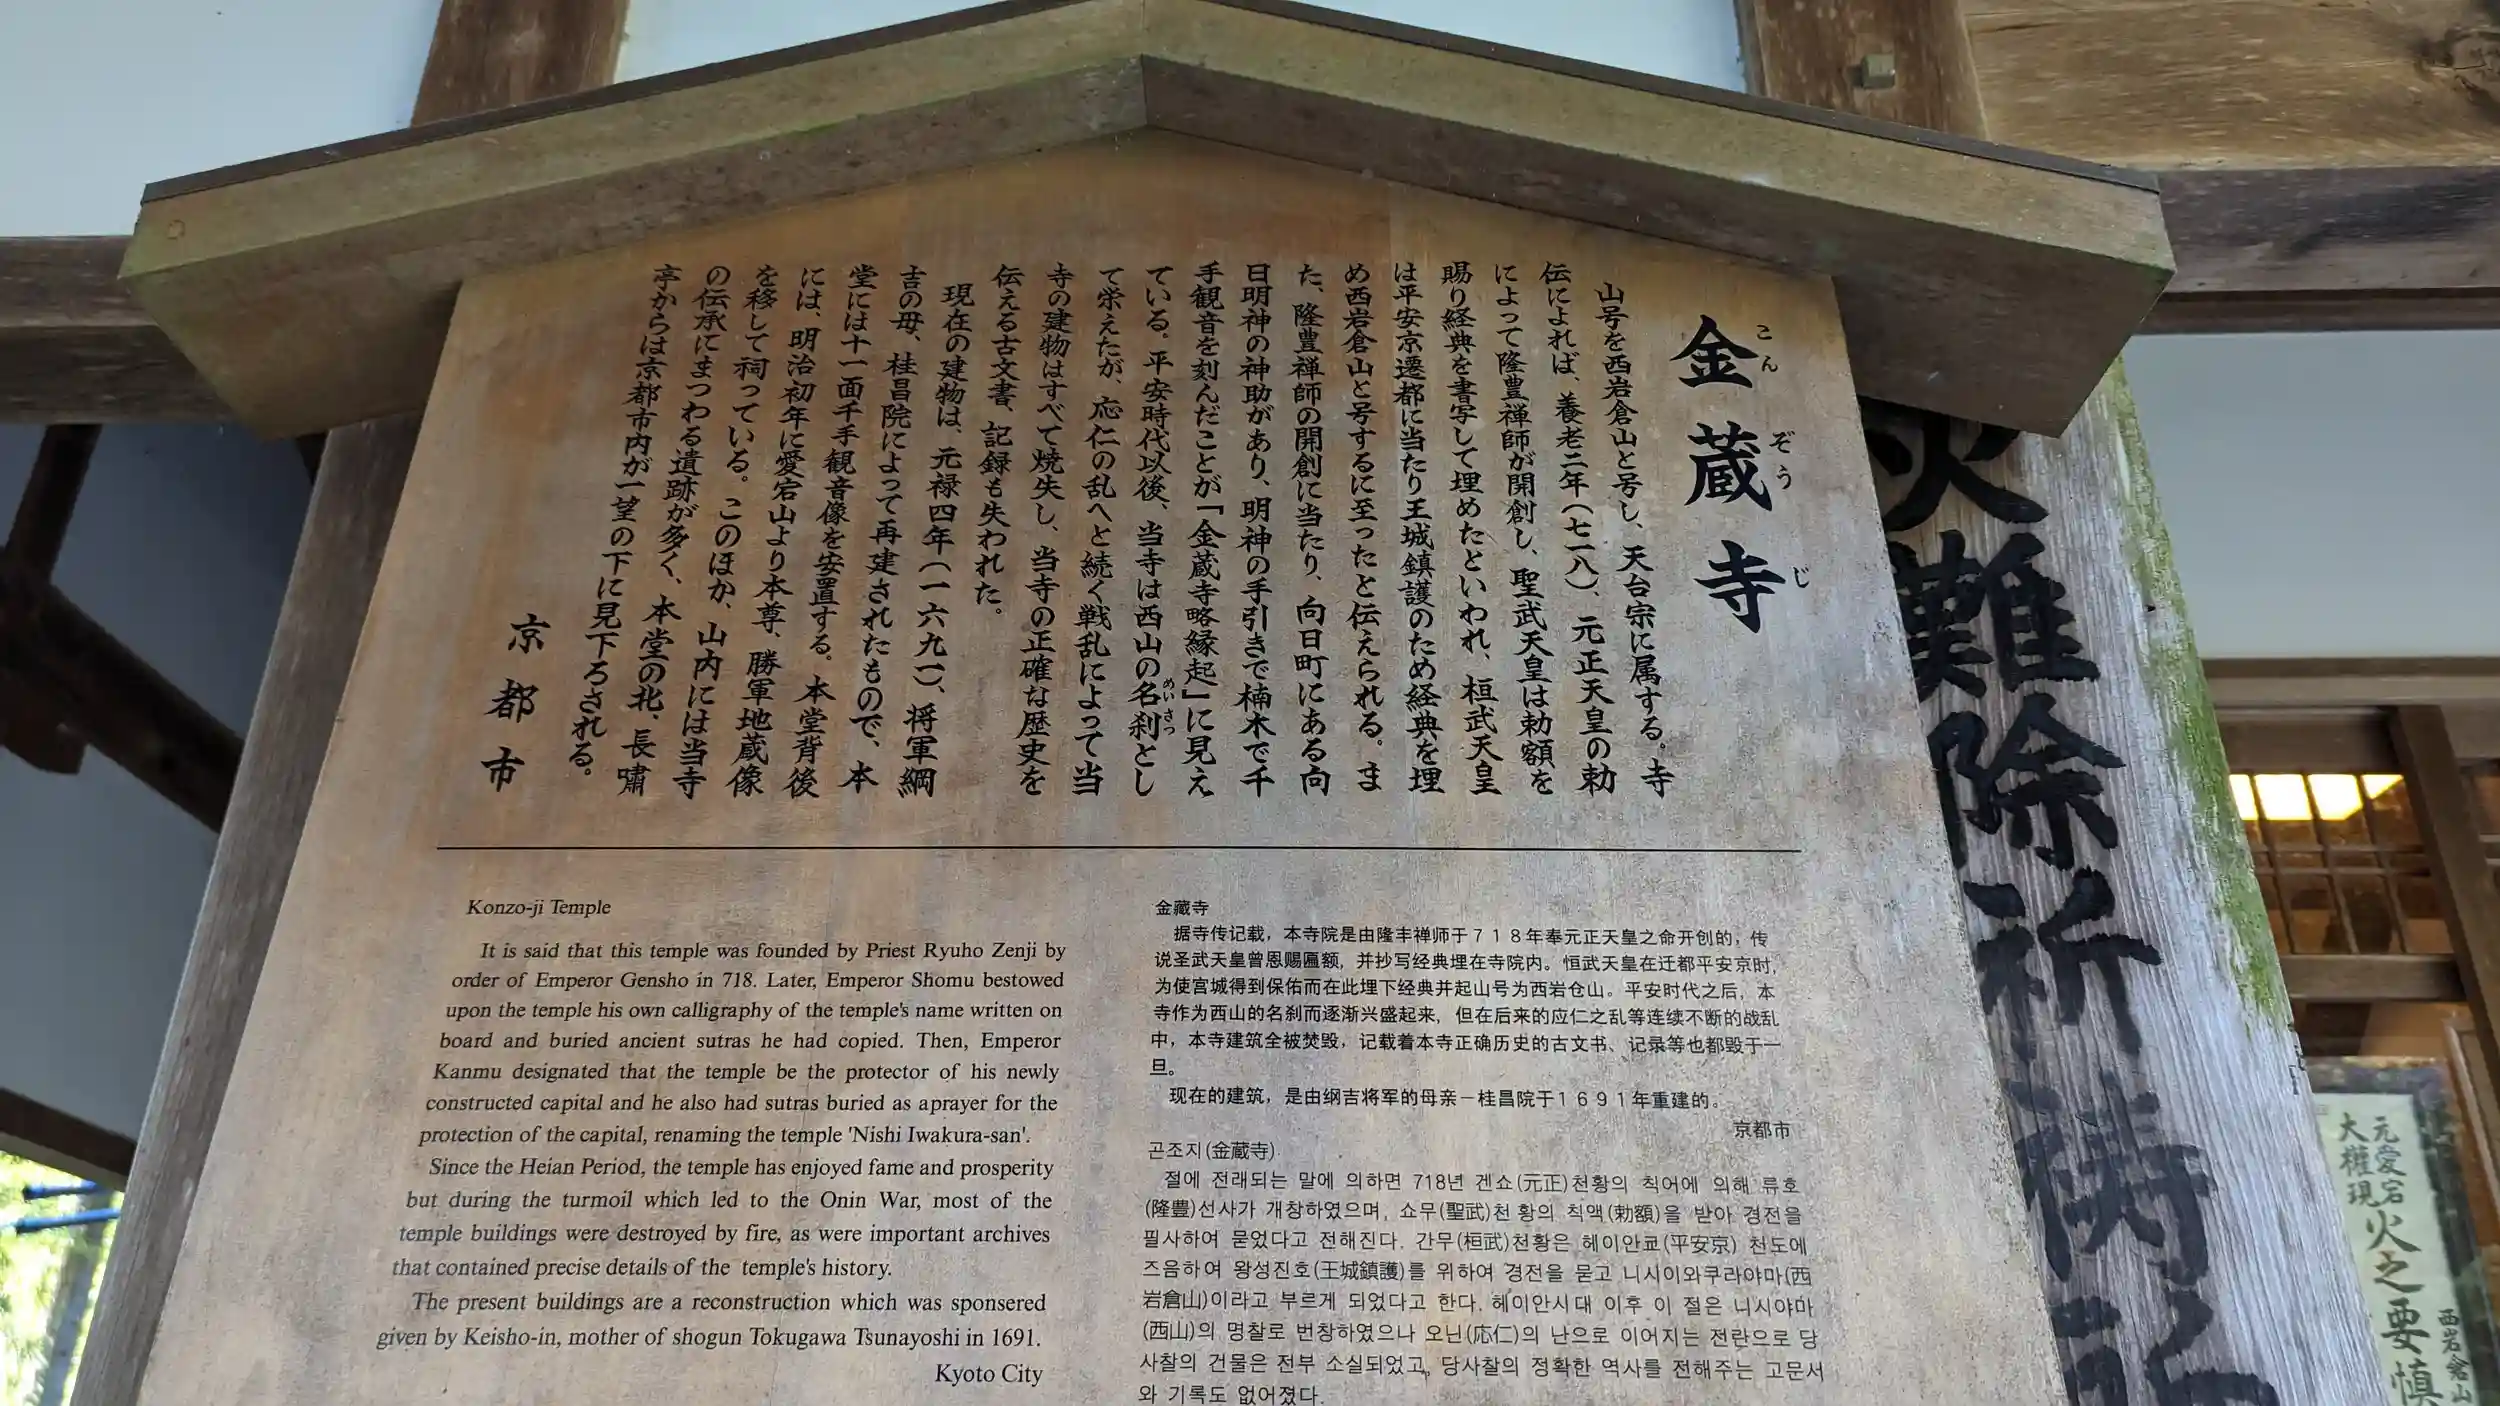 金蔵寺
こんぞうじ
山号を西岩倉山と号し、天台宗に属する。寺
伝によれば、養老二年(七一八)、元正天皇の勅
によって隆豊禅師が開創し、聖武天皇は勅額を
賜り経典を書写して埋めたといわれ、桓武天皇
は平安京遷都に当たり王城鎮護のため経典を埋
め西岩倉山と号するに至ったと伝えられる。ま
た、隆豊禅師の開創に当たり、向日町にある向
日明神の神助があり、明神の手引きで楠木で千
手観音を刻んだことが「金蔵寺略縁起」に見え
ている。平安時代以後、当寺は西山の名刹とし
めいさつ
て栄えたが、応仁の乱へと続く戦乱によって当
寺の建物はすべて焼失し、当寺の正確な歴史を
伝える古文書、記録も失われた。
現在の建物は、元禄四年(一六九一)、将軍綱
吉の母、桂昌院によって再建されたもので、本
堂には十一面千手観音像を安置する。本堂背後
には、明治初年に愛宕山より本尊、勝軍地蔵像
を移して祠っている。このほか、山内には当寺
の伝承にまつわる遺跡が多く、本堂の北、長嘯
亭からは京都市内が一望の下に見下ろされる。
京都市
Konzo-ji Temple
It is said that this temple was founded by Priest Ryuho Zenji by
order of Emperor Gensho in 718. Later, Emperor Shomu bestowed
upon the temple his own calligraphy of the temple's name written on
board and buried ancient sutras he had copied. Then, Emperor
Kanmu designated that the temple be the protector of his newly
constructed capital and he also had sutras buried as aprayer for the
protection of the capital, renaming the temple 'Nishi Iwakura-san'.
Since the Heian Period, the temple has enjoyed fame and prosperity
but during the turmoil which led to the Onin War, most of the
temple buildings were destroyed by fire, as were important archives
that contained precise details of the temple's history.
The present buildings are a reconstruction which was sponsered
given by Keisho-in, mother of shogun Tokugawa Tsunayoshi in 1691.
Kyoto City
金藏寺
据寺传记载，本寺院是由隆丰禅师于７１８年奉元正天皇之命开创的，传
说圣武天皇曾恩赐匾额，并抄写经典埋在寺院内。恒武天皇在迁都平安京时，
为使宫城得到保佑而在此埋下经典并起山号为西岩仓山。平安时代之后，本
寺作为西山的名刹而逐渐兴盛起来，但在后来的应仁之乱等连续不断的战乱
中，本寺建筑全被焚毁，记载着本寺正确历史的古文书、记录等也都毁于一
旦。
现在的建筑，是由纲吉将军的母亲－桂昌院于１６９１年重建的。
京都市
곤조지(金蔵寺)
절에 전래되는 말에 의하면 718년 겐쇼(元正)천황의 칙어에 의해 류호
(隆豊)선사가 개창하였으며, 쇼무(聖武)천 황의 칙액(勅額)을 받아 경전을
필사하여 묻었다고 전해진다. 간무(桓武)천황은 헤이안쿄(平安京) 천도에
즈음하여 왕성진호(王城鎮護)를 위하여 경전을 묻고 니시이와쿠라야마(西
岩倉山)이라고 부르게 되었다고 한다. 헤이안시대 이후 이 절은 니시야마
(西山)의 명찰로 번창하였으나 오닌(応仁)의 난으로 이어지는 전란으로 당
사찰의 건물은 전부 소실되었고, 당사찰의 정확한 역사를 전해주는 고문서
와 기록도 없어졌다.
火難除祈祷
元愛宕
大權現
火之要慎
西岩倉山